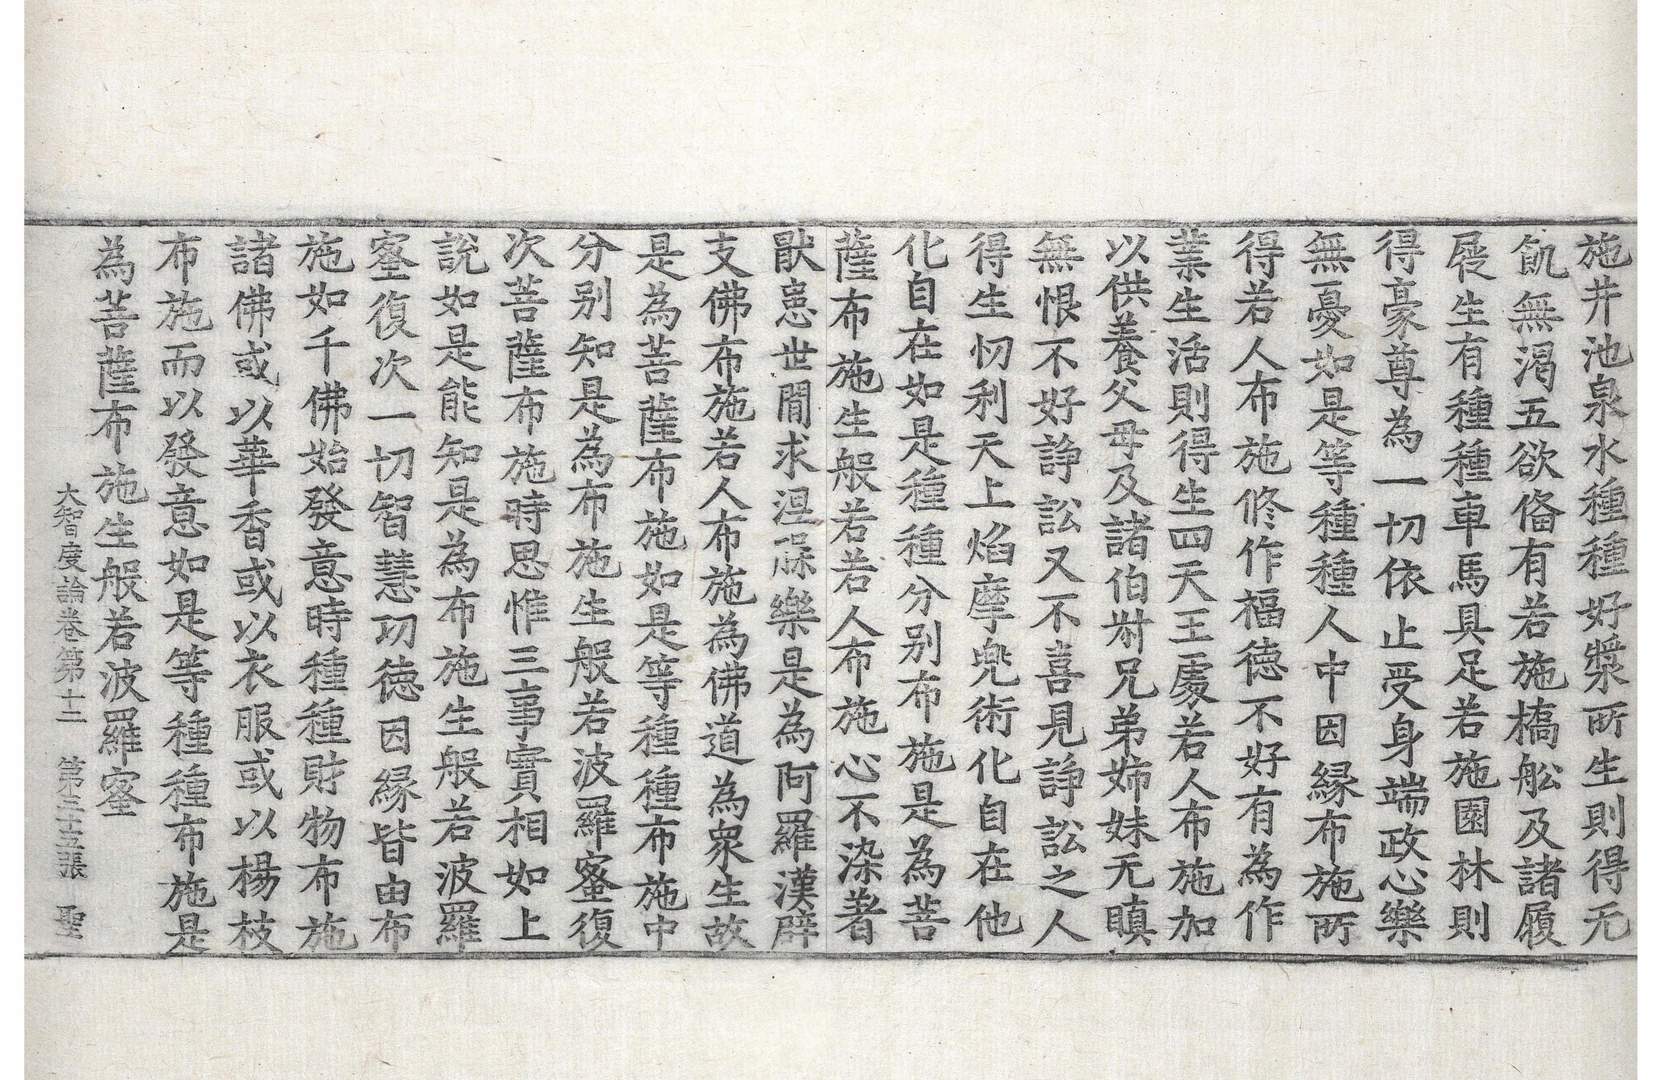 施井池泉水種種好漿所生則得无
飢無渴五欲俻有若施橋舩及諸履
屣生有種種車馬具足若施園林則
得豪尊為一切依止受身端政心樂
無憂如是等種種人中因縁布施所
得若人布施修作福德不好有為作
業生活則得生四天王處若人布施加
以供養父母及諸伯叔兄弟姉妹无瞋
無恨不好諍訟又不喜見諍訟之人
得生忉利天上焰摩兜術化自在他
化自在如是種種分别布施是為菩
薩布施生般若若人布施心不染著
猒患世閒求涅槃樂是為阿羅漢辟
支佛布施若人布施為佛道為衆生故
是為菩薩布施如是等種種布施中
分别知是為布施生般若波羅蜜復
次菩薩布施時思惟三事實相如上
說如是能知是為布施生般若波羅
蜜復次一切智慧功德因縁皆由布
施如千佛始發意時種種財物布施
諸佛或以華香或以衣服或以楊枝
布施而以發意如是等種種布施是
為菩薩布施生般若波羅蜜
大智度論卷第十二 第三十五張 聖